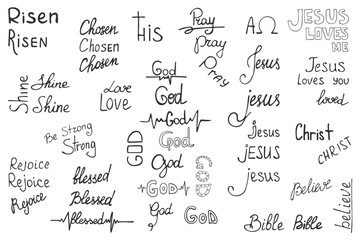 Risen
RiSEN
Chosen
Chosen
Chosen
tHiS
Pray
Pray
Pray
ΑΩ
JESUS
LOVES
ME
Shine
Shine
Shine
Love
LOVE
God
God
God
Jesus
jesus
JESUS
Loves you
loved
Be Strong
Strong
GOD
GOD
God
GOD
GOD
God
GOD
Jesus
JESUS
jesus
Christ
CHRIST
Rejoice
Rejoice
Rejoice
blessed
Blessed
blessed
Believe
believe
Bible
Bible